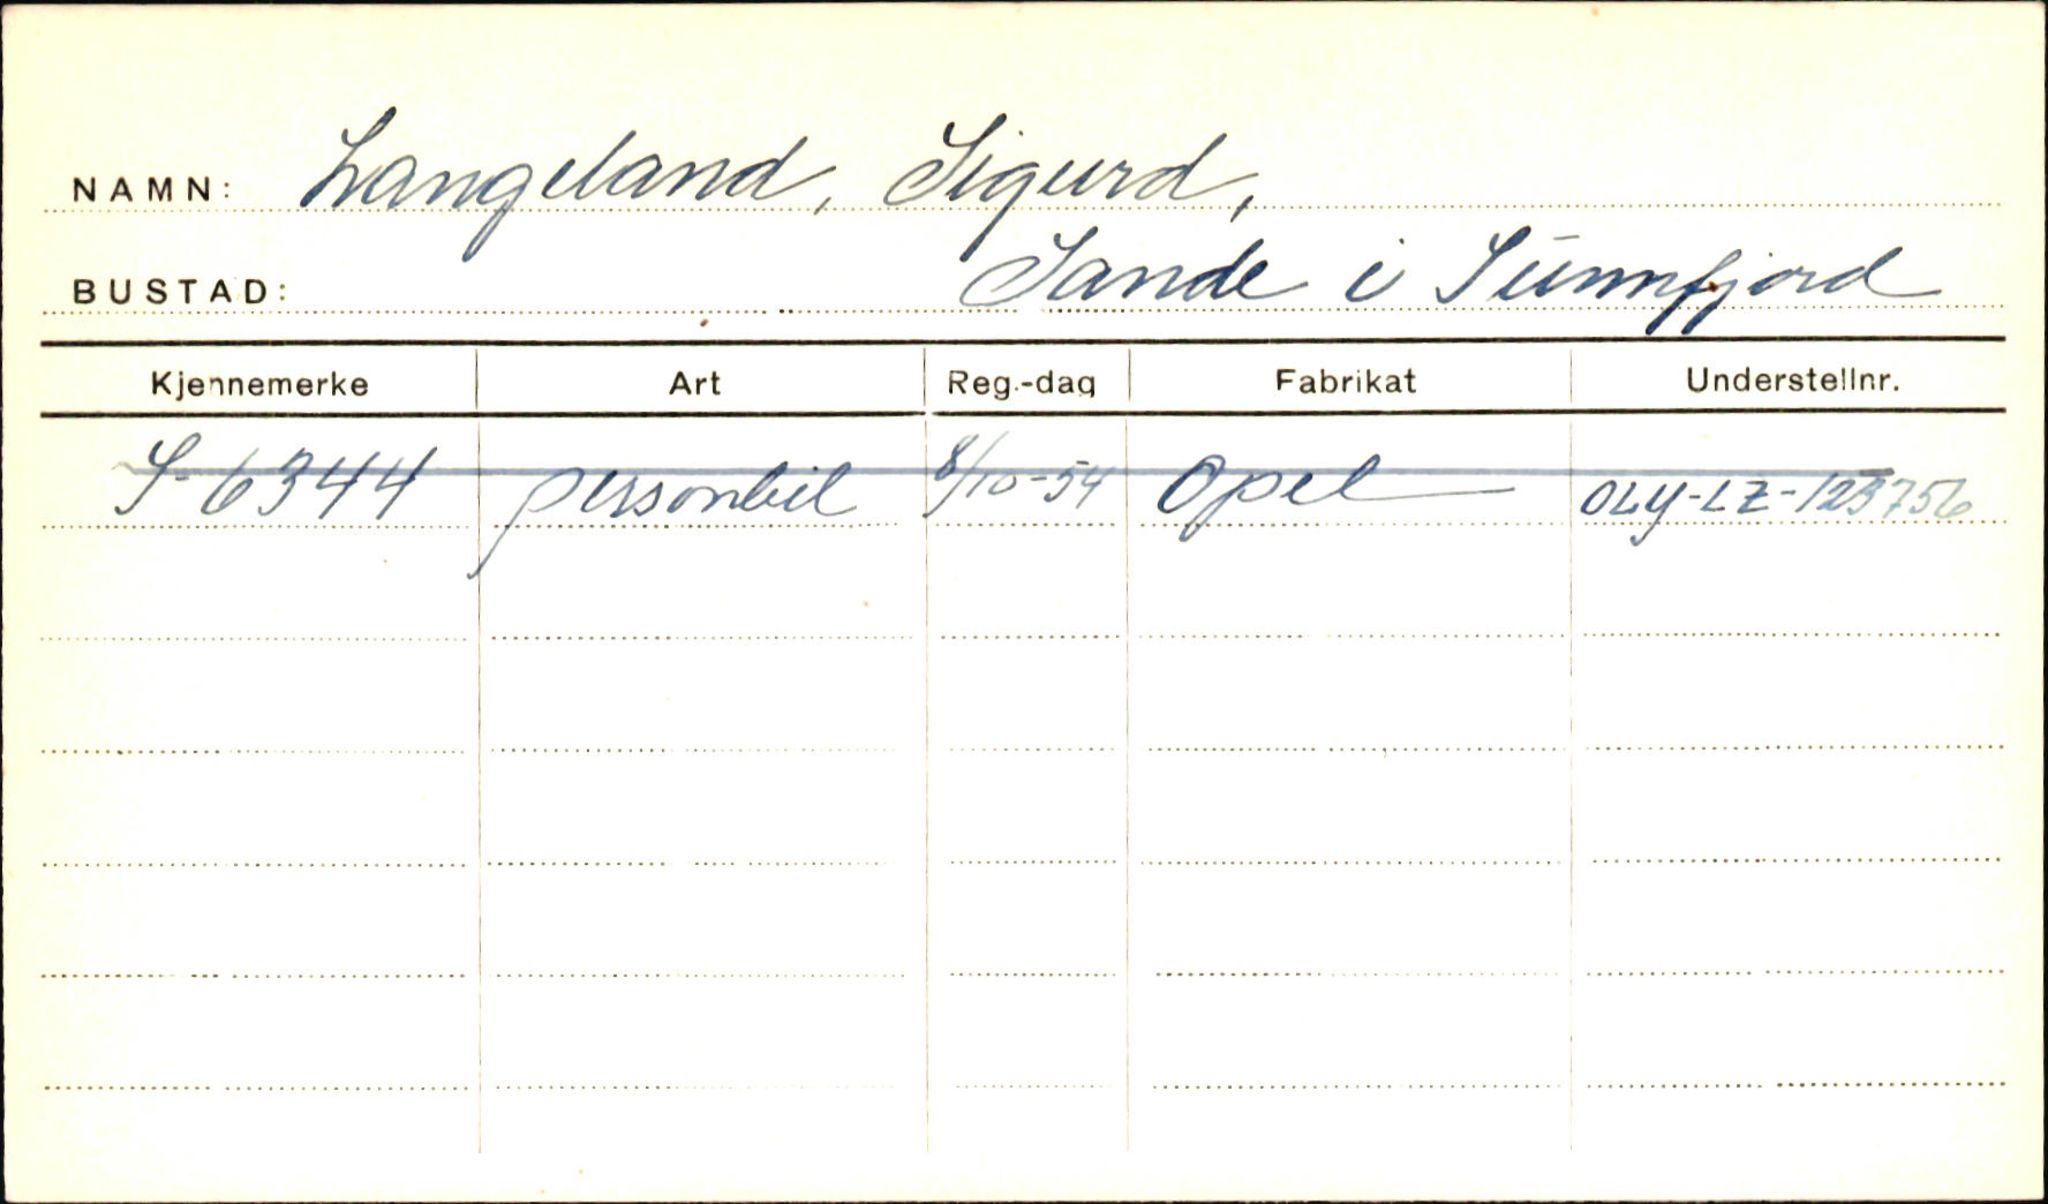 NAMN: Langeland, Sigurd,
BUSTAD: Sande i Sunnfjord
Kjennemerke Art Reg.-dag Fabrikat Understellnr.
S-6344 personbil 8/10-54 Opel OLY-LZ-123756